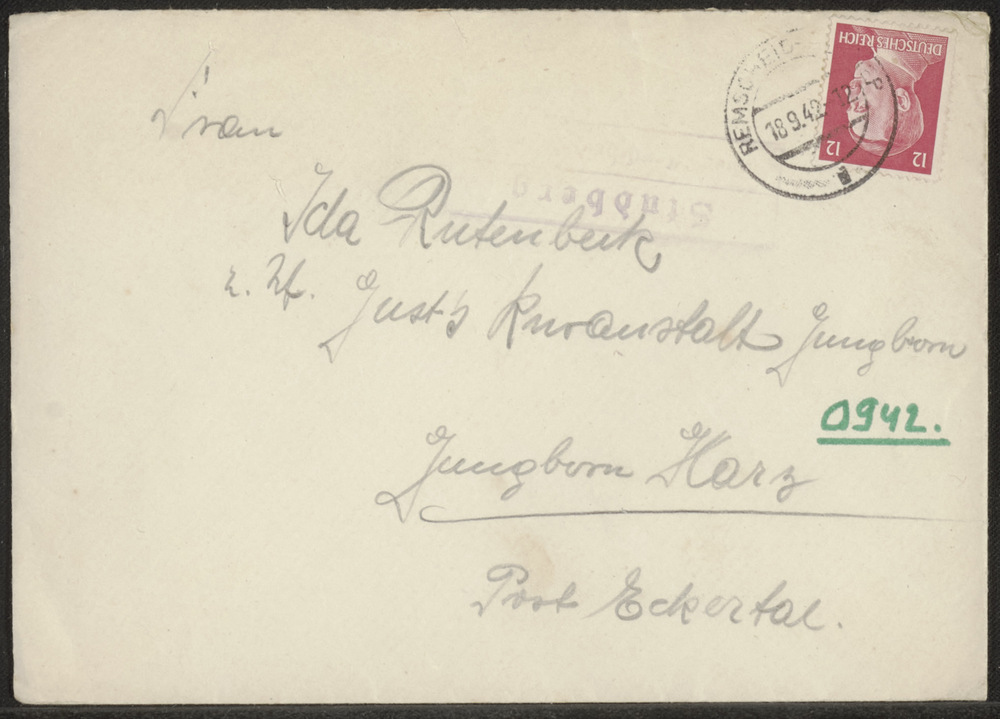 REMSCHEID
18.9.42
DEUTSCHES REICH
12 12
Stubberg
Frau
Ida Rutenbeck
z. Zt. Just's Kuranstalt Jungborn
0942.
Jungborn Harz
Post Eckertal.